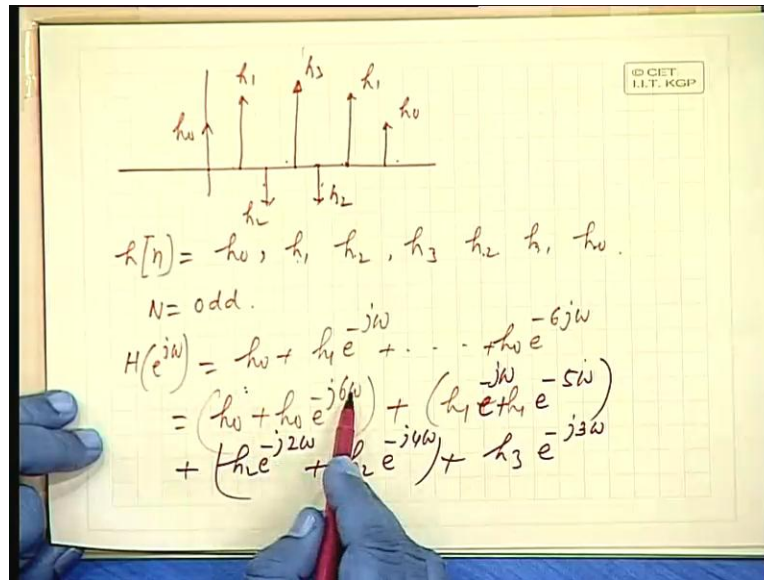 © CET
I.I.T. KGP
h0 h1 h3 h1 h0
h2 h2
h[n] = h0, h1 h2, h3 h2 h1 h0.
N= odd.
H(e^jω) = h0 + h1 e^-jω + . . . . + h0 e^-6jω
= (h0 + h0 e^-j6ω) + (h1 e^-jω + h1 e^-5ω)
+ (h2 e^-j2ω + h2 e^-j4ω) + h3 e^-j3ω